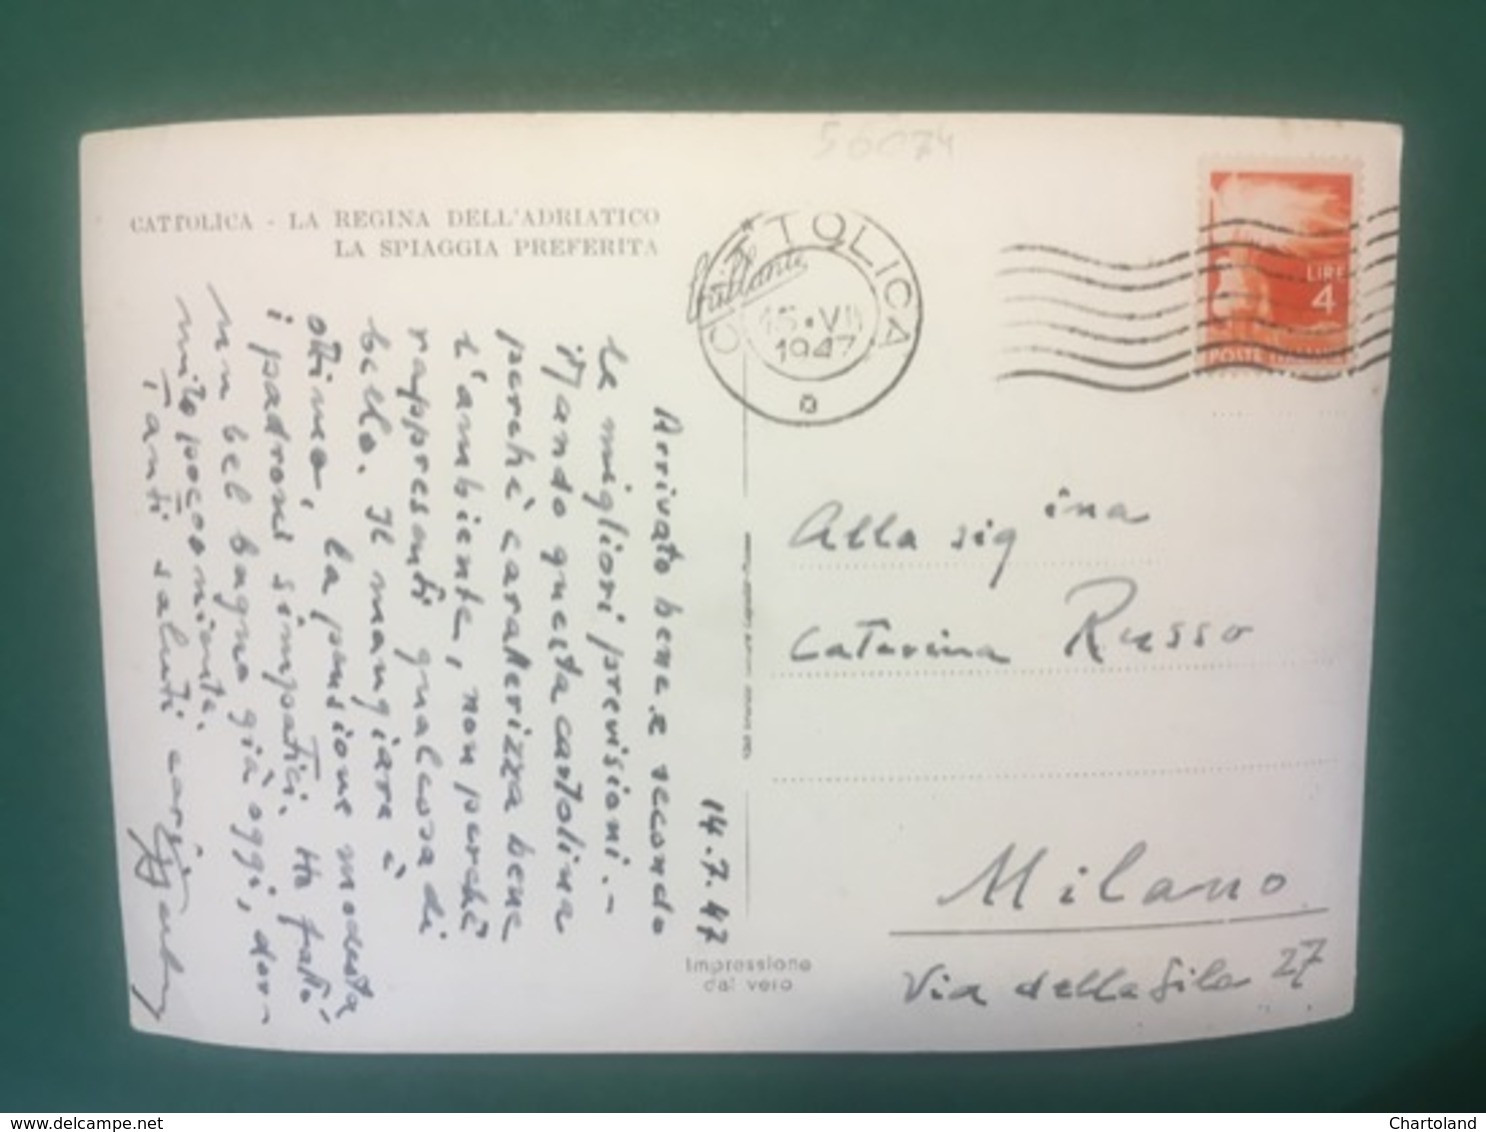 56074
CATTOLICA - LA REGINA DELL'ADRIATICO
LA SPIAGGIA PREFERITA
Brillante
CATTOLICA
15·VII
1947
LIRE
4
POSTE ITALIANE
14.7.47
Arrivato bene e secondo
le migliori previsioni.-
Mando questa cartolina
perché caratterizza bene
l'ambiente, non perché
rappresenti qualcosa di
bello. Il mangiare è
ottimo, la pensione modesta
i padroni simpatici. Ho fatto
un bel bagno già oggi, dor-
mito poccomiente.
Tanti saluti cari
Alla sig ina
Caterina Russo
Milano
Via della Sila 27
Impressione
dal vero
delcampe.net
Chartoland